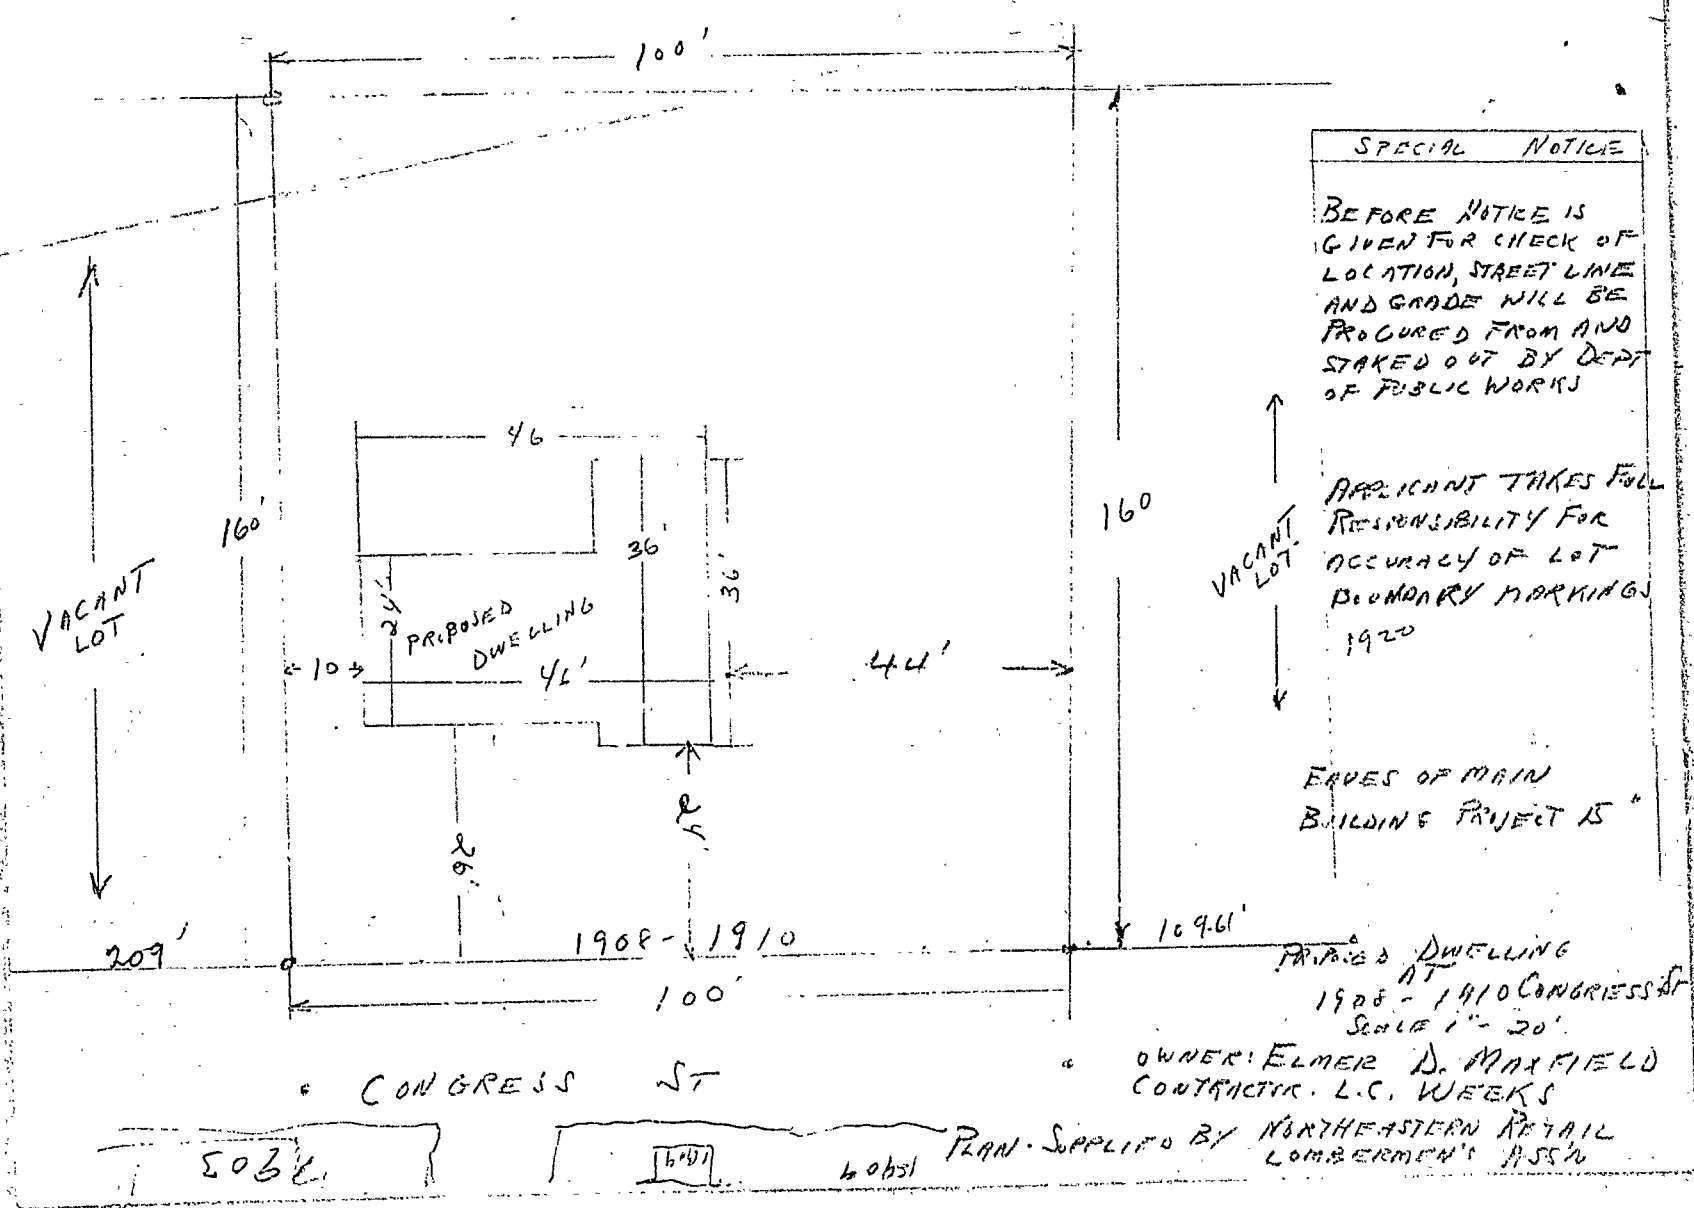 100'
SPECIAL NOTICE
BEFORE NOTICE IS
GIVEN FOR CHECK OF
LOCATION, STREET LINE
AND GRADE WILL BE
PROCURED FROM AND
STAKED OUT BY DEPT
OF PUBLIC WORKS
APPLICANT TAKES FULL
RESPONSIBILITY FOR
ACCURACY OF LOT
BOUNDARY MARKINGS
1920
EAVES OF MAIN
BUILDING PROJECT 15"
VACANT
LOT
160'
46
36'
36'
24'
PROPOSED
DWELLING
10
46'
44'
160
VACANT
LOT
26'
24'
209'
1908-1910
109.61'
100'
PROPOSED DWELLING
AT
1908-1910 CONGRESS ST
SCALE 1"-20'
OWNER: ELMER D. MAXFIELD
CONTRACTOR. L.C. WEEKS
PLAN-SUPPLIED BY NORTHEASTERN RETAIL
LUMBERMEN'S ASS'N
CONGRESS ST